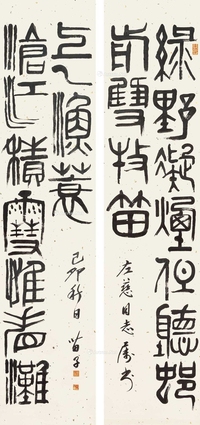 綠野凝煙但聽邨
前雙牧笛
左慈同志屬书
滄江積雪惟看灘
上一漁蓑
己卯秋日 苗子